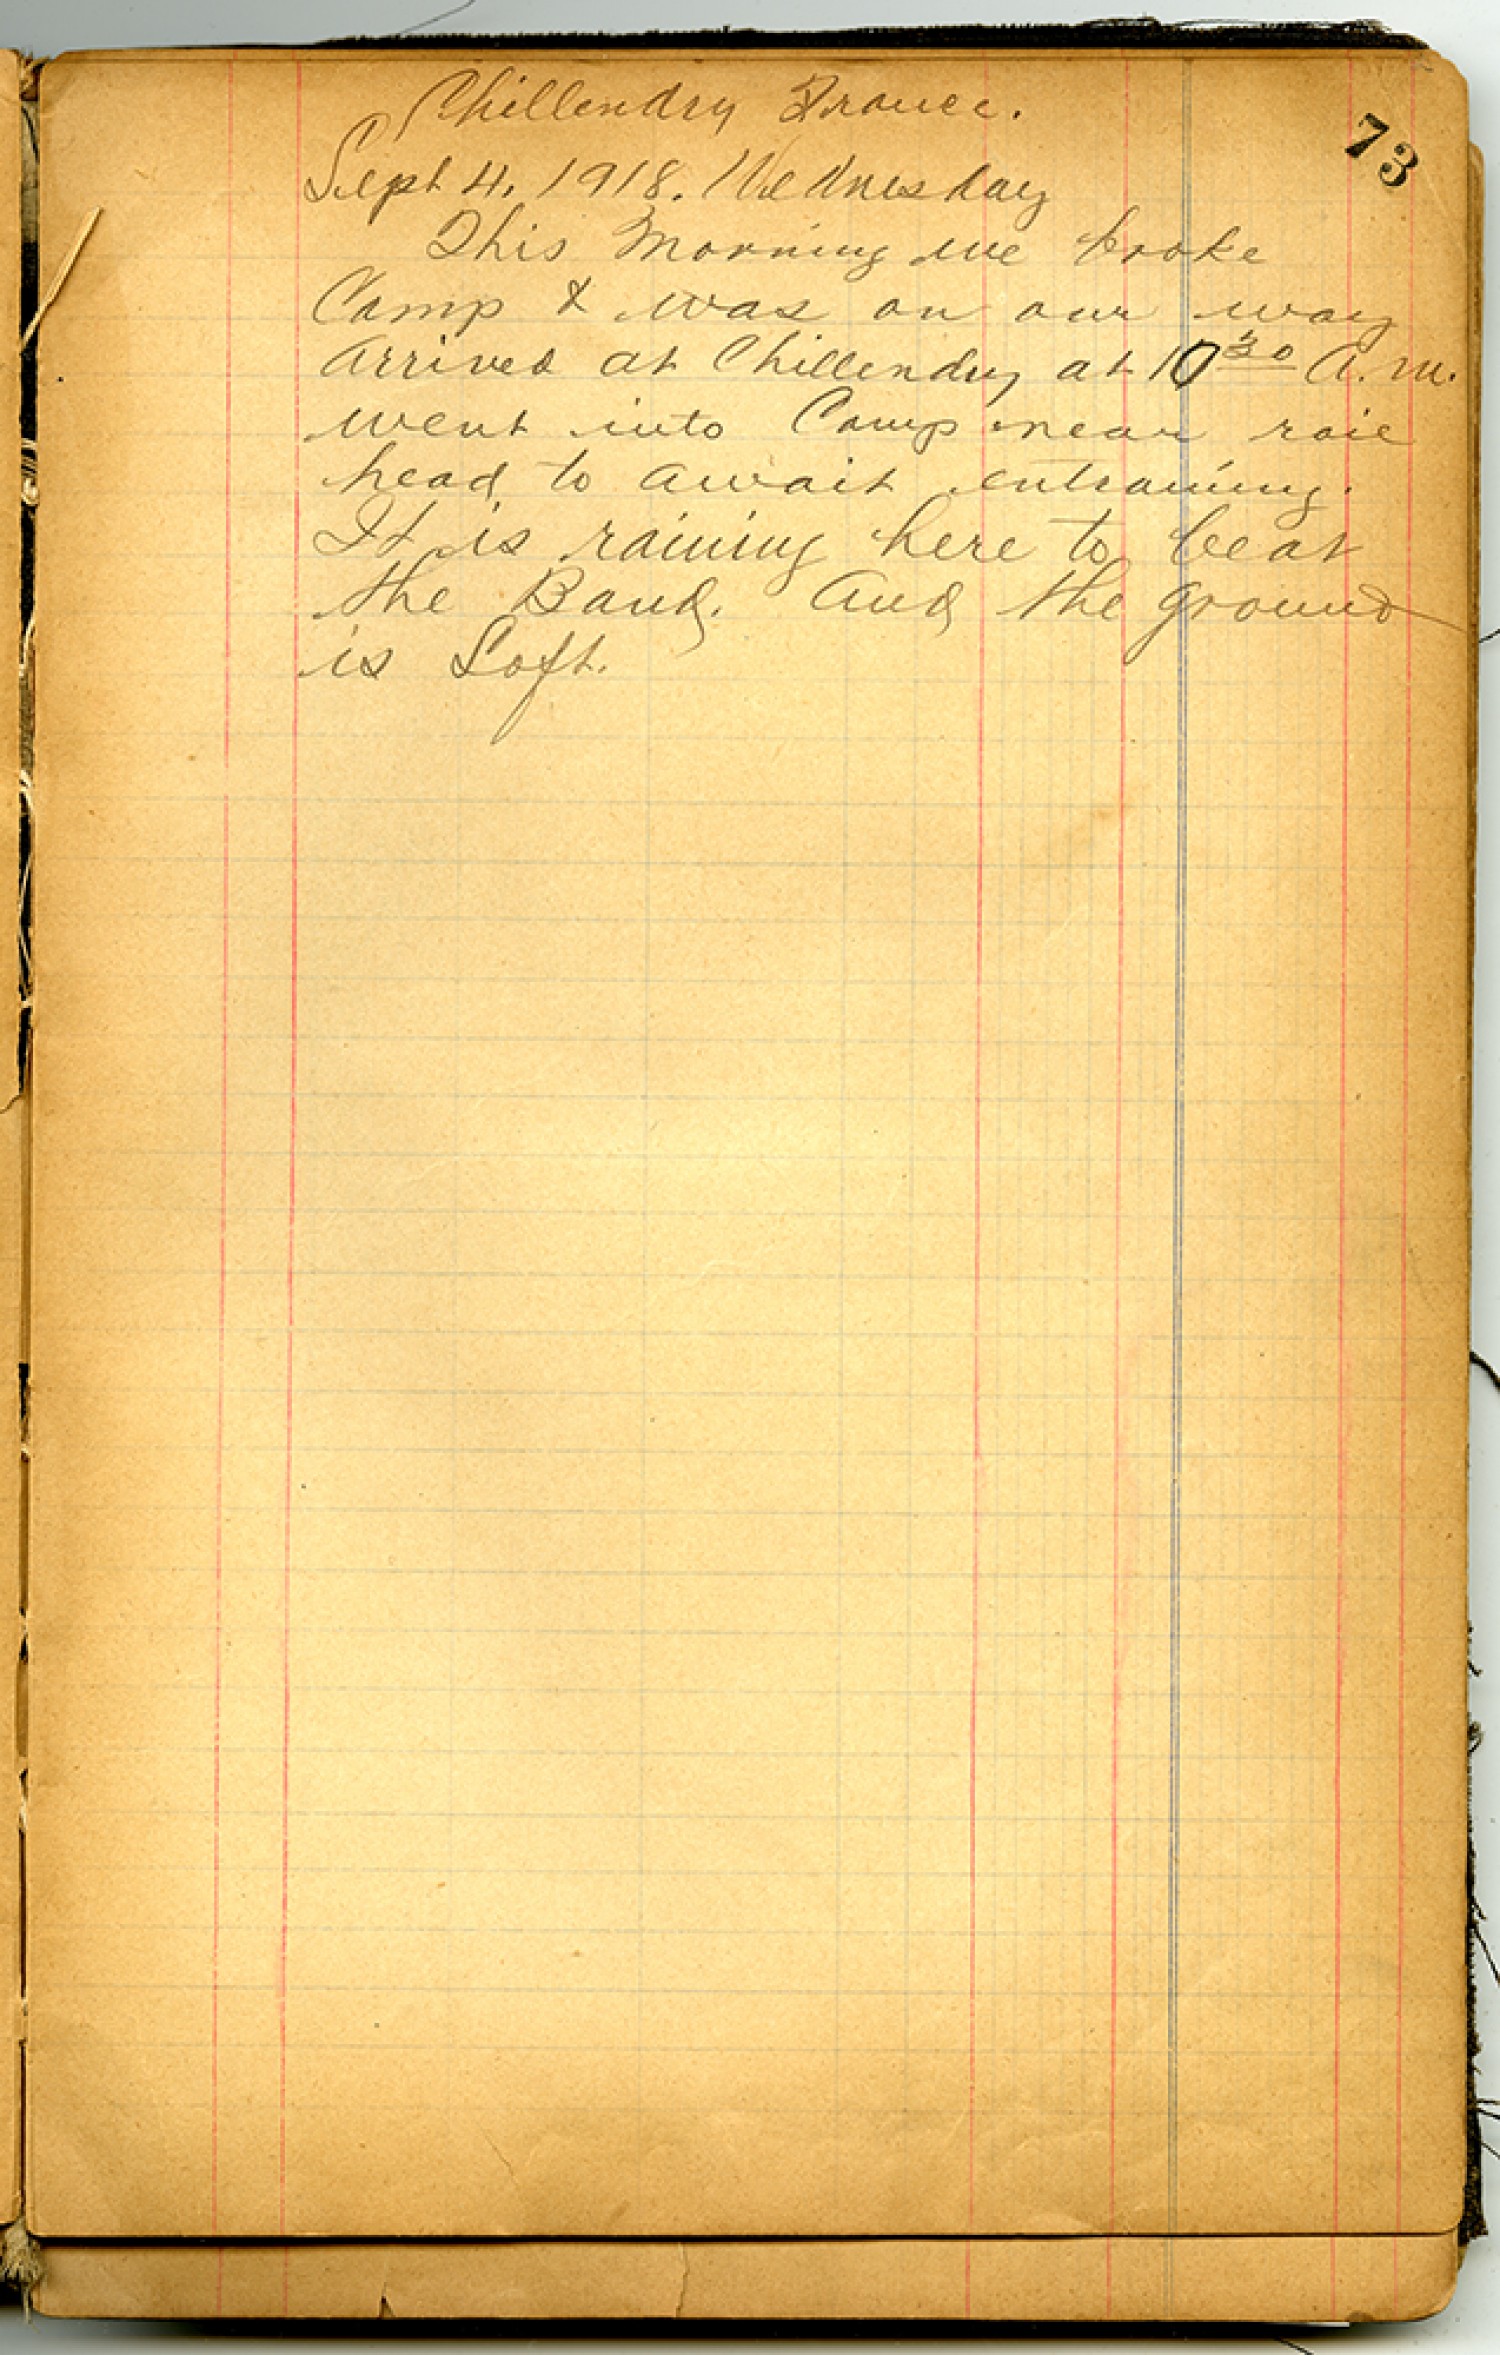 73
Chillendry France.
Sept 4, 1918. Wednesday
This Morning we broke
Camp & was on our way
Arrived at Chillendry at 10 30 A.M.
went into Camp near rail
head to await entraining.
It is raining here to beat
the Band. And the ground
is Soft.